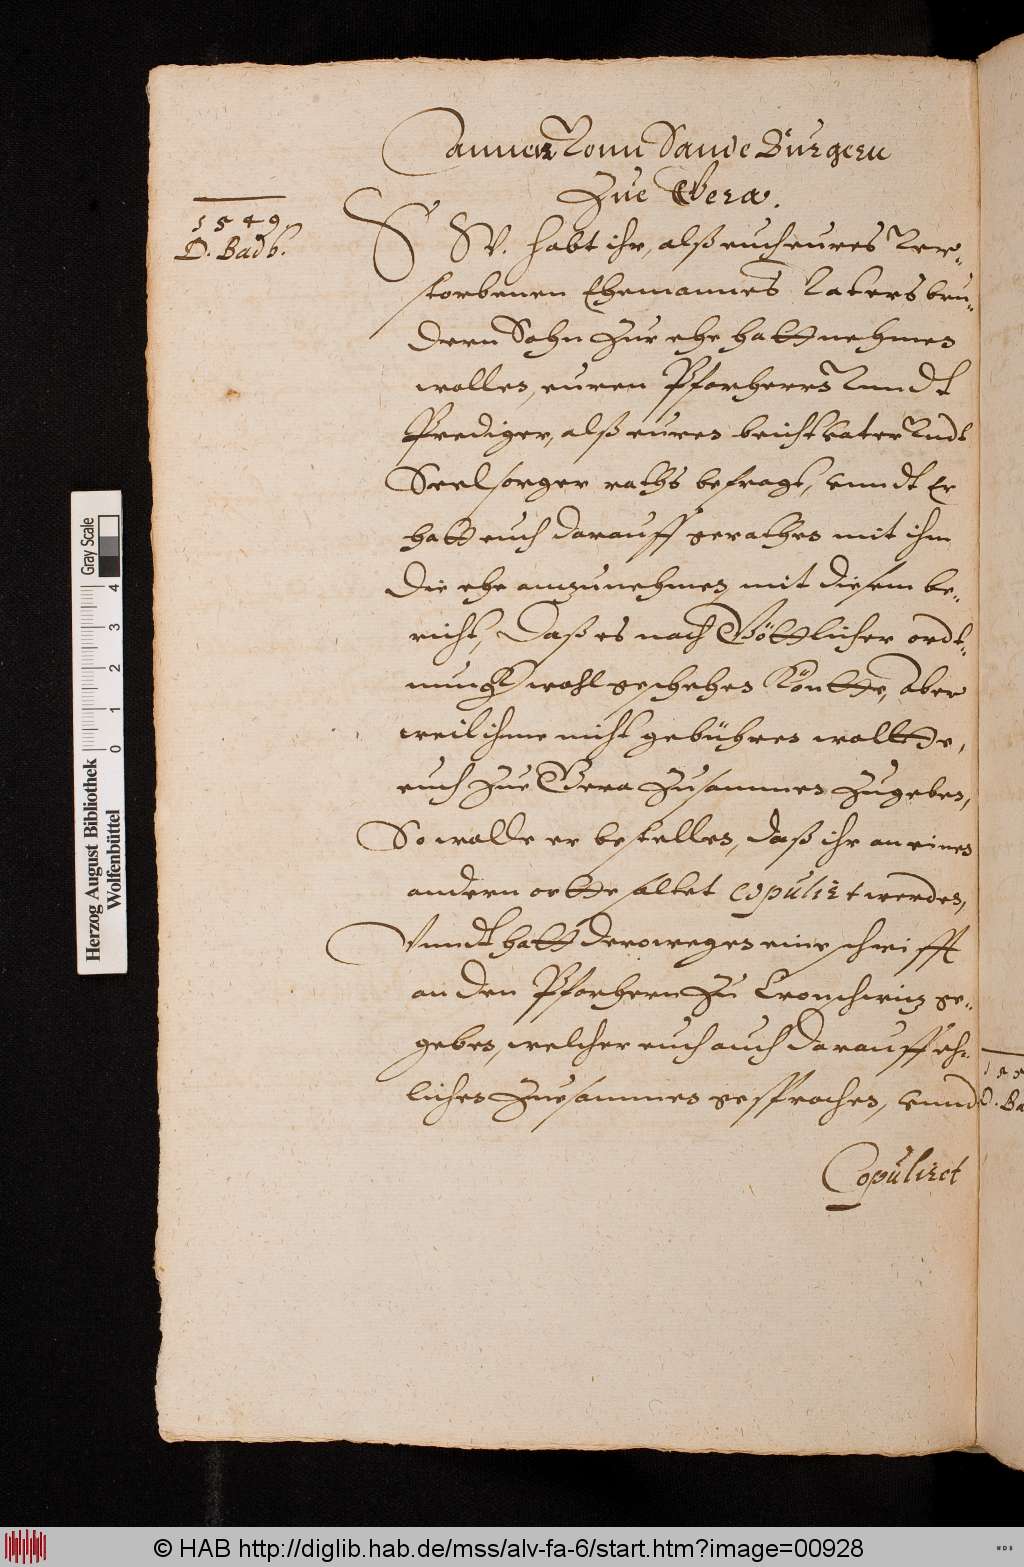 Annen Vonn Sande Bürgern
Zue Gera.
1549.
D. Badh.
SW. habt ihr, alß euch eures Ver-
storbenen Ehemannes Vaters bru-
dern Sohn zur ehe hatt nehmen
wollen, euren Pfarherrn Vnndt
Prediger, alß euren beichtvater Vndt
Seelsorger raths befragt, vnndt Er
hatt euch darauff gerathen mit ihm
die ehe anzunehmen, mit diesem be-
richt, Daß es nach Göttlicher ordt-
nung wohl geschehen Köntte, Aber
weil ihme nicht gebühren wollte,
euch zue Gera zusammen zugeben,
So wolle er bestellen, daß ihr an einen
andern ortte soltet copulirt werden,
Vnndt hatt derowegen eine schrifft
an den Pfarhern zu Cronschwiz ge-
geben, welcher euch auch darauff eh-
lichen zuesammen gesprochen, vnnd
Copuliret
Herzog August Bibliothek
Wolfenbüttel
0 1 2 3 4
Gray Scale
D. Ba
© HAB http://diglib.hab.de/mss/alv-fa-6/start.htm?image=00928